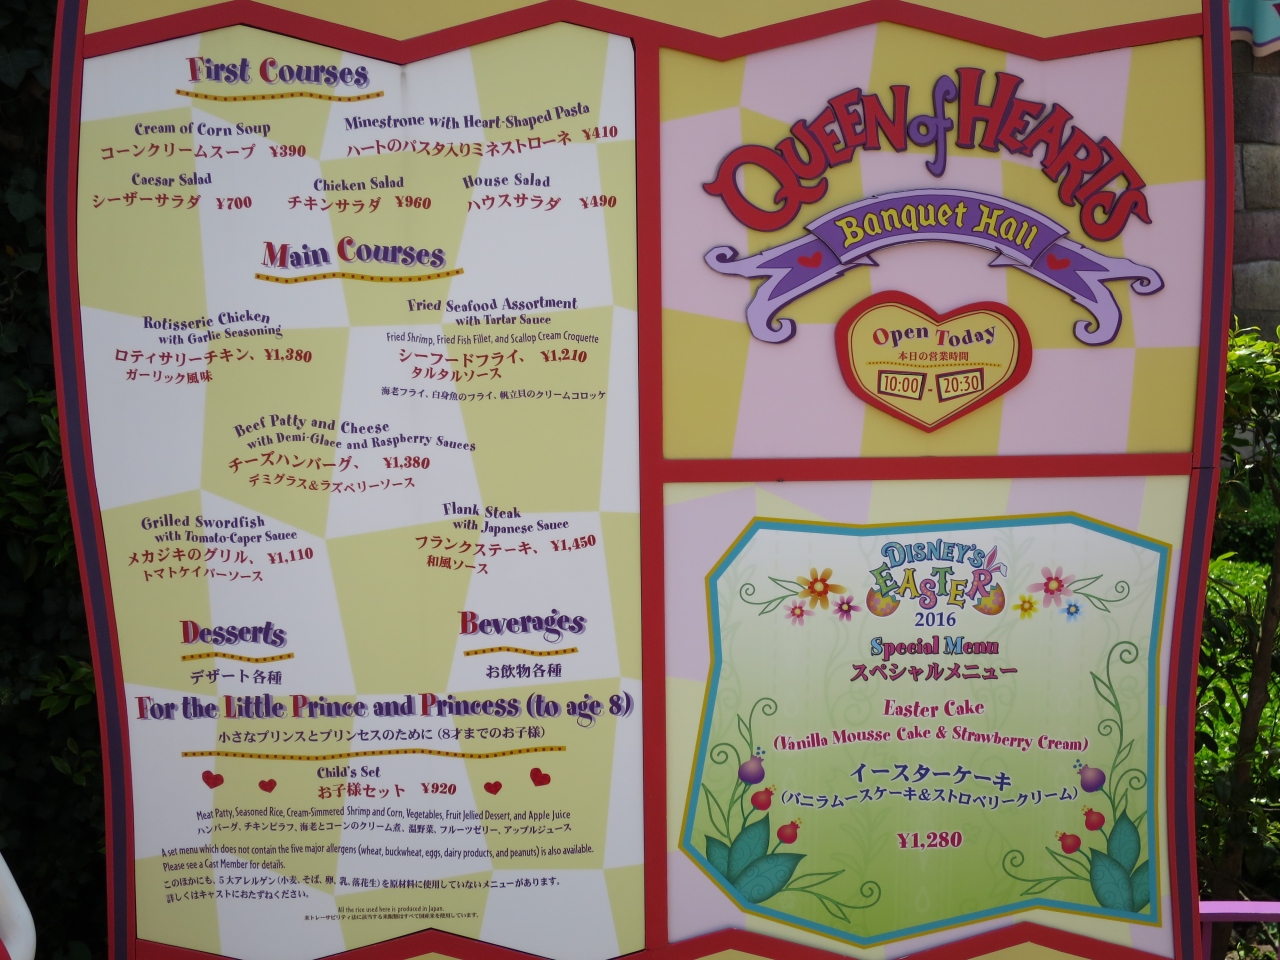 First Courses
Cream of Corn Soup
コーンクリームスープ ¥390
Minestrone with Heart-Shaped Pasta
ハートのパスタ入りミネストローネ ¥410
Caesar Salad
シーザーサラダ ¥700
Chicken Salad
チキンサラダ ¥960
House Salad
ハウスサラダ ¥490
Main Courses
Rotisserie Chicken
with Garlic Seasoning
ロティサリーチキン、 ¥1,380
ガーリック風味
Fried Seafood Assortment
with Tartar Sauce
Fried Shrimp, Fried Fish Fillet, and Scallop Cream Croquette
シーフードフライ、 ¥1,210
タルタルソース
海老フライ、白身魚のフライ、帆立貝のクリームコロッケ
Beef Patty and Cheese
with Demi-Glace and Raspberry Sauces
チーズハンバーグ、 ¥1,380
デミグラス&ラズベリーソース
Grilled Swordfish
with Tomato-Caper Sauce
メカジキのグリル、 ¥1,110
トマトケイパーソース
Flank Steak
with Japanese Sauce
フランクステーキ、 ¥1,450
和風ソース
Desserts
デザート各種
Beverages
お飲物各種
For the Little Prince and Princess (to age 8)
小さなプリンスとプリンセスのために (8才までのお子様)
Child's Set
お子様セット ¥920
Meat Patty, Seasoned Rice, Cream-Simmered Shrimp and Corn, Vegetables, Fruit Jellied Dessert, and Apple Juice
ハンバーグ、チキンピラフ、海老とコーンのクリーム煮、温野菜、フルーツゼリー、アップルジュース
A set menu which does not contain the five major allergens (wheat, buckwheat, eggs, dairy products, and peanuts) is also available.
Please see a Cast Member for details.
このほかにも、5大アレルゲン(小麦、そば、卵、乳、落花生)を原材料に使用していないメニューがあります。
詳しくはキャストにおたずねください。
All the rice used here is produced in Japan.
※トレーサビリティ法に該当する米飯類はすべて国産米を使用しています。
QUEEN of HEARTS
Banquet Hall
Open Today
本日の営業時間
10:00 - 20:30
DISNEY'S
EASTER
2016
Special Menu
スペシャルメニュー
Easter Cake
(Vanilla Mousse Cake & Strawberry Cream)
イースターケーキ
(バニラムースケーキ&ストロベリークリーム)
¥1,280